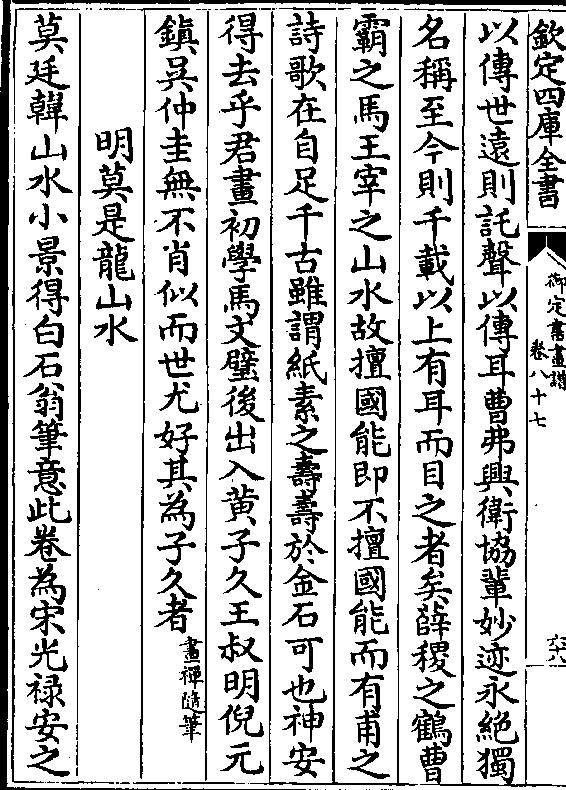 欽定四庫全書
御定書畫譜
卷八十七
六十八
以傳世遠則託聲以傳耳曹弗興衛協輩妙迹永絕獨
名稱至今則千載以上有耳而目之者矣薛稷之鶴曹
霸之馬王宰之山水故擅國能即不擅國能而有甫之
詩歌在自足千古雖謂紙素之壽壽於金石可也神安
得去乎君畫初學馬文璧後出入黄子久王叔明倪元
鎮吳仲圭無不肖似而世尤好其為子久者畫禪隨筆
明莫是龍山水
莫廷韓山水小景得白石翁筆意此卷為宋光禄安之